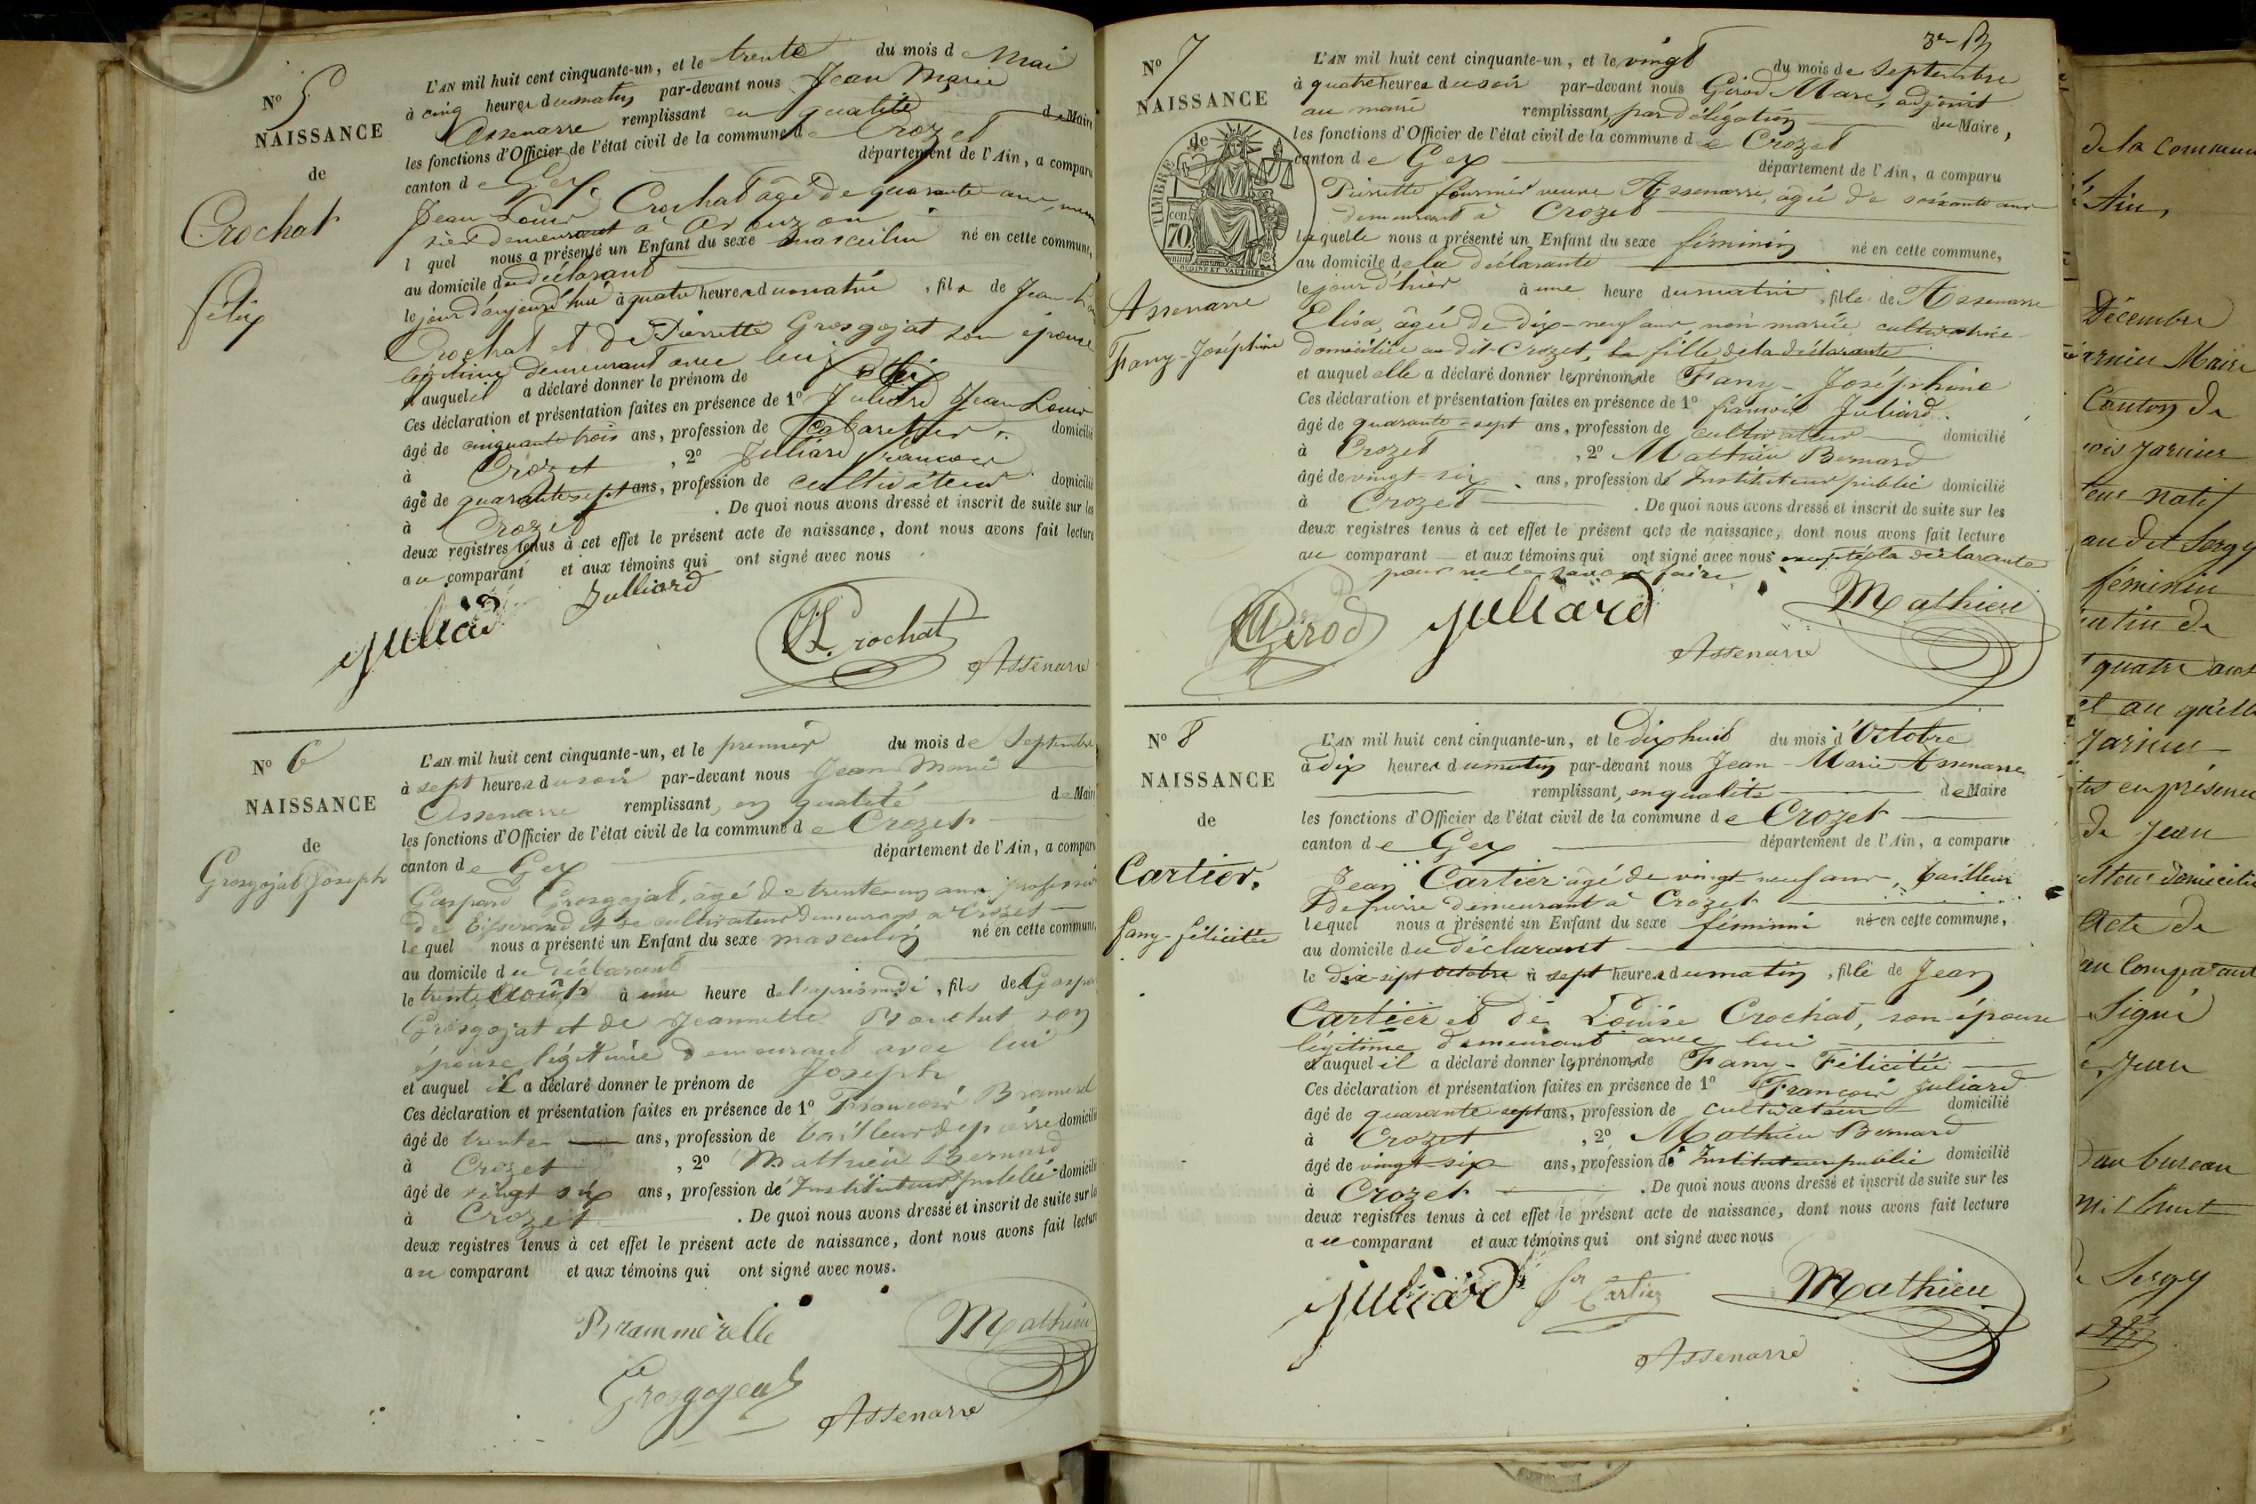 N° 5
NAISSANCE
de
Crochat
Félix
L'AN mil huit cent cinquante-un, et le trente du mois de Mai
à cinq heures du matin par-devant nous Jean Marie
Assenarre remplissant en qualité de Maire
les fonctions d'Officier de l'état civil de la commune de Crozet
canton de Gex département de l'Ain, a comparu
Jean Louis Crochat âgé de quarante ans,
demeurant à
l quel nous a présenté un Enfant du sexe masculin né en cette commune,
au domicile du déclarant
le jour d'aujourd'hui à quatre heures du matin, fils de Jean
Crochat et de Pierrette Grosgojat son épouse
légitime demeurant avec lui
et auquel il a déclaré donner le prénom de Félix
Ces déclaration et présentation faites en présence de 1° Juliard Jean Louis
âgé de cinquante trois ans, profession de Cabaretier domicilié
à Crozet, 2° Juliard François
âgé de quarante sept ans, profession de cultivateur domicilié
à Crozet. De quoi nous avons dressé et inscrit de suite sur les
deux registres tenus à cet effet le présent acte de naissance, dont nous avons fait lecture
au comparant et aux témoins qui ont signé avec nous
Juliard
Julliard
Crochat
Assenarre
N° 6
NAISSANCE
de
Grosgojat Joseph
L'AN mil huit cent cinquante-un, et le premier du mois de Septembre
à sept heures du soir par-devant nous Jean Marie
Assenarre remplissant, en qualité de Maire
les fonctions d'Officier de l'état civil de la commune de Crozet
canton de Gex département de l'Ain, a comparu
Gaspard Grosgojat, âgé de trente-un ans, profession
de tisserand et de cultivateur demeurant à Crozet
lequel nous a présenté un Enfant du sexe masculin né en cette commune,
au domicile du déclarant
le trente Août à une heure de l'après midi, fils de Gaspard
Grosgojat et de Jeannette Bouchet son
épouse légitime demeurant avec lui
et auquel il a déclaré donner le prénom de Joseph
Ces déclaration et présentation faites en présence de 1° François
âgé de trente ans, profession de tailleur de pierre domicilié
à Crozet, 2° Mathieu Bernard
âgé de vingt six ans, profession de Instituteur public domicilié
à Crozet. De quoi nous avons dressé et inscrit de suite sur les
deux registres tenus à cet effet le présent acte de naissance, dont nous avons fait lecture
au comparant et aux témoins qui ont signé avec nous.
Brammerelle
Mathieu
Grosgojeat
Assenarre
N° 7
NAISSANCE
de
TIMBRE
70
Assenarre
Fany-Joséphine
L'AN mil huit cent cinquante-un, et le vingt du mois de septembre
à quatre heures du soir par-devant nous Girod Marc, adjoint
au maire remplissant, par délégation du Maire,
les fonctions d'Officier de l'état civil de la commune de Crozet
canton de Gex département de l'Ain, a comparu
Pierrette fournier veuve Assenarre, âgée de soixante ans
demeurant à Crozet
laquelle nous a présenté un Enfant du sexe féminin né en cette commune,
au domicile de la déclarante
le jour d'hier à une heure du matin, fille de Assenarre
Elisa, âgée de dix-neuf ans, non mariée cultivatrice
domiciliée au dit Crozet, la fille de la déclarante
et auquel elle a déclaré donner les prénoms de Fany-Joséphine
Ces déclaration et présentation faites en présence de 1° françois Juliard
âgé de quarante-sept ans, profession de cultivateur domicilié
à Crozet, 2° Mathieu Bernard
âgé de vingt-six ans, profession de Instituteur public domicilié
à Crozet. De quoi nous avons dressé et inscrit de suite sur les
deux registres tenus à cet effet le présent acte de naissance, dont nous avons fait lecture
au comparant et aux témoins qui ont signé avec nous excepté la déclarante
pour ne le savoir faire
Girod
Juliard
Mathieu
Assenarre
N° 8
NAISSANCE
de
Cartier,
fany-félicitée
L'AN mil huit cent cinquante-un, et le Dix huit du mois d'Octobre
à dix heures du matin par-devant nous Jean-Marie Assenarre
remplissant, en qualité de Maire
les fonctions d'Officier de l'état civil de la commune de Crozet
canton de Gex département de l'Ain, a comparu
Jean Cartier âgé de vingt neuf ans, tailleur
de pierre demeurant à Crozet
lequel nous a présenté un Enfant du sexe féminin né en cette commune,
au domicile du déclarant
le dix-sept octobre à sept heures du matin, fille de Jean
Cartier et de Louise Crochat, son épouse
légitime demeurant avec lui
et auquel il a déclaré donner les prénoms de Fany-Félicitée
Ces déclaration et présentation faites en présence de 1° François Juliard
âgé de quarante-sept ans, profession de cultivateur domicilié
à Crozet, 2° Mathieu Bernard
âgé de vingt-six ans, profession de Instituteur public domicilié
à Crozet. De quoi nous avons dressé et inscrit de suite sur les
deux registres tenus à cet effet le présent acte de naissance, dont nous avons fait lecture
au comparant et aux témoins qui ont signé avec nous
Juliard
Cartier
Mathieu
Assenarre
de la commune
Ain,
Décembre
Maire
Canton de
natif
au dit Sergy
féminin
de
quatre
et au qu'elle
en présence
de Jean
domicilié
Acte de
au Comparant
Signé
Jean
au bureau
Sergy